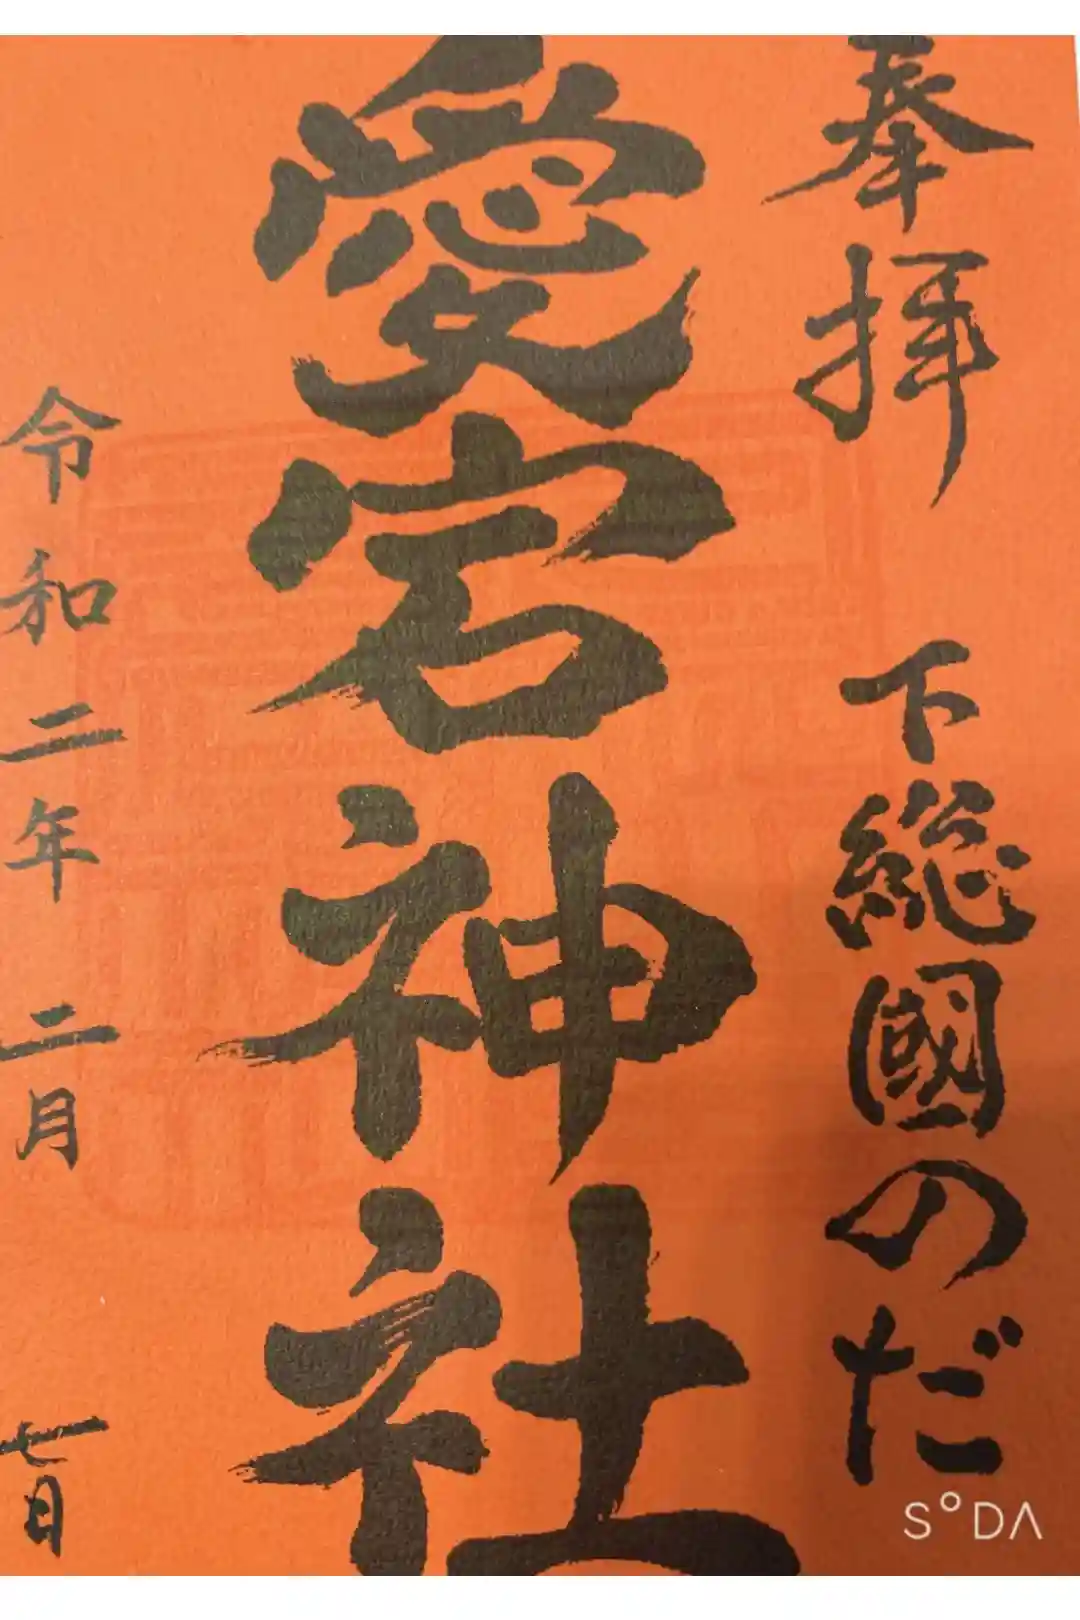 奉拝 下総國のだ
愛宕神社
令和二年 二月 七日
SODA